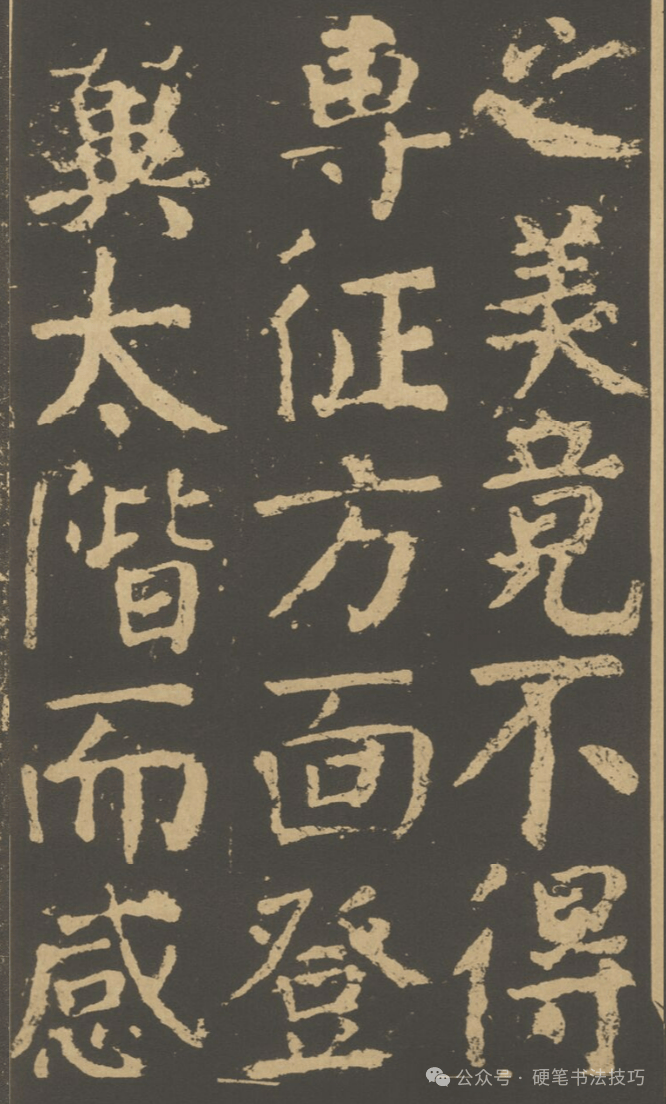 之美竟不得
専征方面登
翼太階而感
公众号·硬笔书法技巧